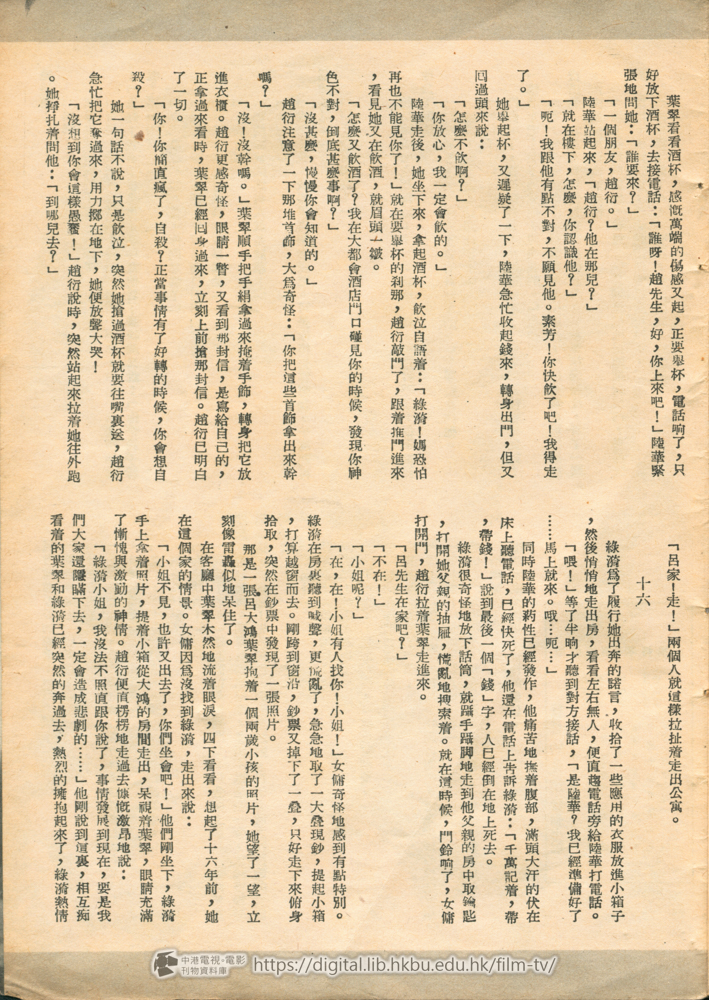 葉翠看看酒杯，感慨萬端的傷感又起，正要舉杯，電話响了，只
好放下酒杯，去接電話：「誰呀！趙先生，好，你上來吧！」陸華緊
張地問她：「誰要來？」
「一個朋友，趙衍。」
陸華站起來，「趙衍？他在那兒？」
「就在樓下，怎麼，你認識他？」
「呃！我跟他有點不對，不願見他。素芳！你快飲了吧！我得走
了。」
她舉起杯，又遲疑了一下，陸華急忙收起錢來，轉身出門，但又
回過頭來說：
「怎麼不飲啊？」
「你放心，我一定會飲的。」
陸華走後，她坐下來，拿起酒杯，飲泣自語着：「綠漪！媽恐怕
再也不能見你了！」就在要舉杯的刹那，趙衍敲門了，跟着推門進來
，看見她又在飲酒，就眉頭一皺。
「怎麼又飲酒了？我在大都會酒店門口碰見你的時候，發現你神
色不對，倒底甚麼事啊？」
「沒甚麼，慢慢你會知道的。」
趙衍注意了一下那堆首飾，大爲奇怪：「你把這些首飾拿出來幹
嗎？」
「沒！沒幹嗎。」葉翠順手把手絹拿過來掩着手飾，轉身把它放
進衣櫃。趙衍更感奇怪，眼睛一瞥，又看到那封信，是寫給自己的，
正拿過來看時，葉翠已經回身過來，立刻上前搶那封信。趙衍已明白
了一切。
「你！你簡直瘋了，自殺？正當事情有了好轉的時候，你會想自
殺？」
她一句話不說，只是飲泣，突然她搶過酒杯就要往嘴裏送，趙衍
急忙把它奪過來，用力擲在地下，她便放聲大哭！
「沒想到你會這樣愚蠢！」趙衍說時，突然站起來拉着她往外跑
。她掙扎着問他：「到哪兒去？」
「呂家！走！」兩個人就這樣拉扯着走出公寓。
十六
綠漪爲了履行她出奔的諾言，收拾了一些應用的衣服放進小箱子
，然後悄悄地走出房，看看左右無人，便直趨電話旁給陸華打電話。
「喂！」等了半晌才聽到對方接話，「是陸華？我已經準備好了
……馬上就來。哦…呃…」
同時陸華的葯性已經發作，他痛苦地撫着腹部，滿頭大汗的伏在
床上聽電話，已經快死了，他還在電話上告訴綠漪：「千萬記着，帶
，帶錢！」說到最後一個「錢」字，人已經倒在地上死去。
綠漪很奇怪地放下話筒，就躡手躡脚地走到他父親的房中取鑰匙
，打開她父親的抽屜，慌亂地搜索着。就在這時候，門鈴响了，女傭
打開門，趙衍拉着葉翠走進來。
「呂先生在家吧？」
「不在！」
「小姐呢？」
「在，在！小姐有人找你！小姐！」女傭奇怪地感到有點特別。
綠漪在房裏聽到喊聲，更慌亂了，急急地取了一大叠現鈔，提起小箱
，打算越窗而去。剛跨到窗沿，鈔票又掉下了一叠，只好走下來俯身
拾取，突然在鈔票中發現了一張照片。
那是一張呂大鴻葉翠抱着一個兩歲小孩的照片，她望了一望，立
刻像雷轟似地呆住了。
在客廳中葉翠木然地流着眼淚，四下看看，想起了十六年前，她
在這個家的情景。女傭因爲沒找到綠漪，走出來說：
「小姐不見，也許又出去了，你們坐會吧！」他們剛坐下，綠漪
手上拿着照片，提着小箱從大鴻的房間走出，呆視着葉翠，眼睛充滿
了慚愧與激動的神情。趙衍便直楞楞地走過去慷慨激昂地說：
「綠漪小姐，我沒法不照直跟你說了，事情發展到現在，要是我
們大家還隱瞞下去，一定會造成悲劇的……」他剛說到這裏，相互痴
看着的葉翠和綠漪已經突然的奔過去，熱烈的擁抱起來了，綠漪熱情
中港電視·電影
刊物資料庫
https://digital.lib.hkbu.edu.hk/film-tv/